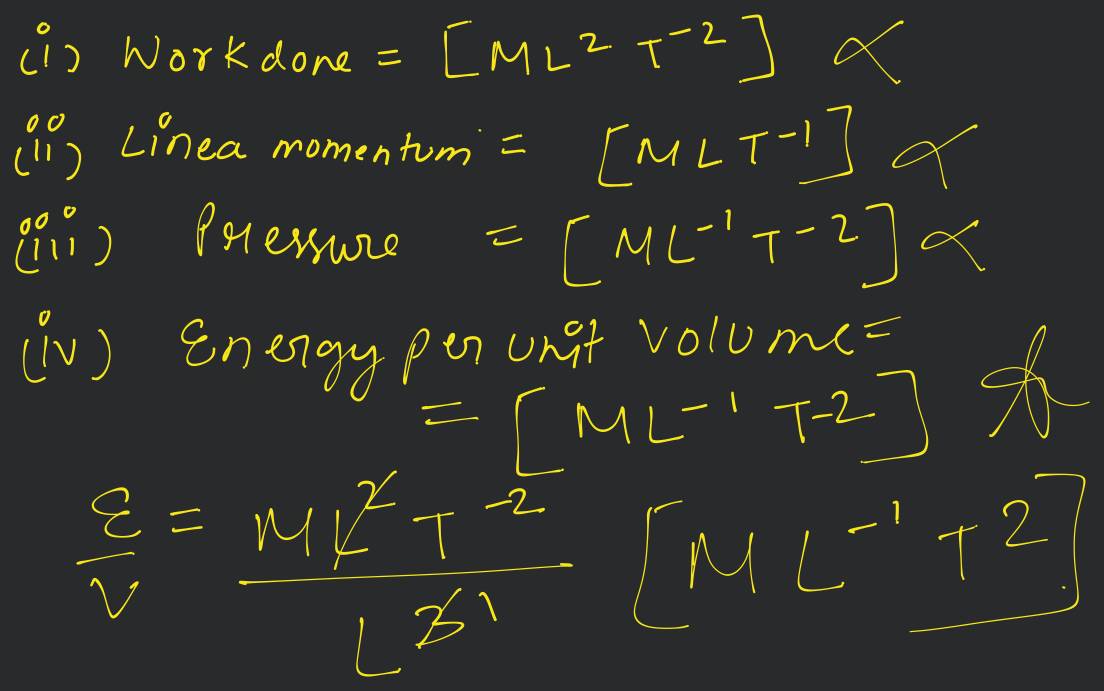 (i) Workdone = [ML² T⁻²] ∝
(ii) Linea momentum = [MLT⁻¹] ∝
(iii) Pressure = [ML⁻¹T⁻²] ∝
(iv) Energy per unit volume =
= [ML⁻¹ T⁻²]
E/V = ML²T⁻² / L³ ¹ [ML⁻¹T²]